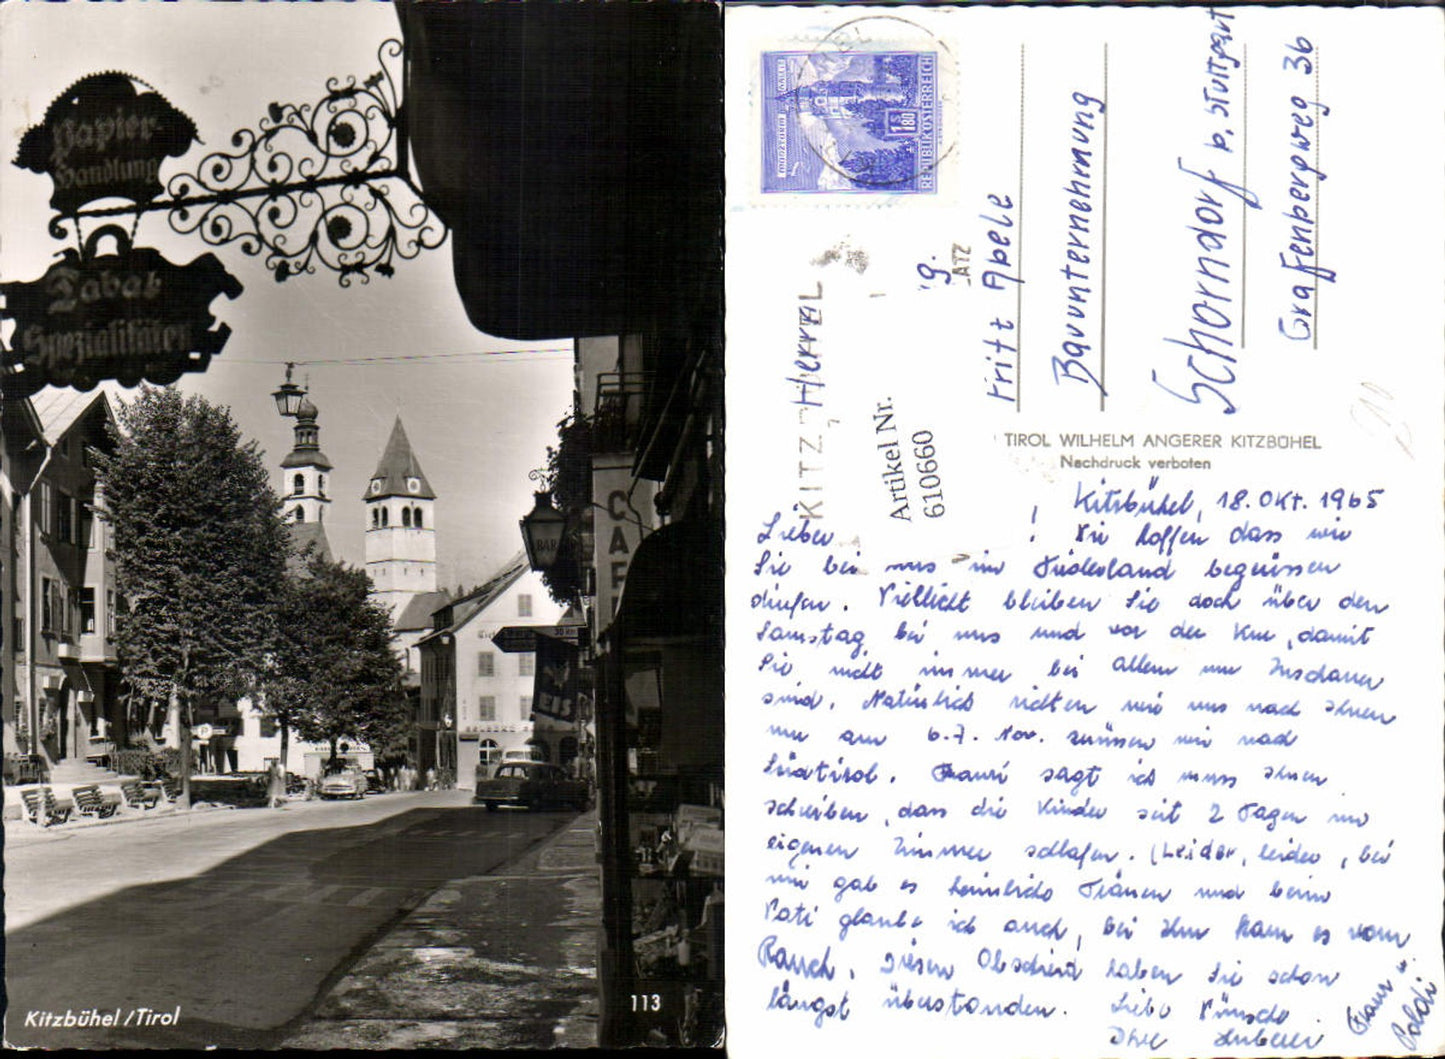 Papier-
Handlung
Tabak
Spezialitäten
BAR
CAFE
EIS
Kitzbühel/Tirol
113
REPUBLIK ÖSTERREICH
1 S
1.80
KITZ
Herrn
Fritz Abele
Bauunternehmung
Schorndorf b. Stuttgart
Grafenbergweg 36
Artikel Nr.
610660
TIROL WILHELM ANGERER KITZBÜHEL
Nachdruck verboten
Kitzbühel, 18. Okt. 1965
Lieber ! Wir hoffen dass wir
Sie bei uns im begrüssen
dürfen. Vielleicht bleiben Sie doch über den
Samstag bei uns und vor der , damit
Sie nicht immer bei allem nur Zuschauer
sind. Natürlich richten wir uns nach Ihnen
nur am 6.-7. Nov. müssen wir nach
Südtirol. Hansi sagt ich muss Ihnen
schreiben, dass die Kinder seit 2 Tagen im
eigenen Zimmer schlafen. (Leider, leider, bei
mir gab es heimlich Tränen und beim
Vati glaube ich auch, bei Ihm kam es vom
Rauch. Diesen Abschied haben Sie schon
längst überstanden. Liebe Wünsche
Ihre Huberer
Hansi u.
Poldi